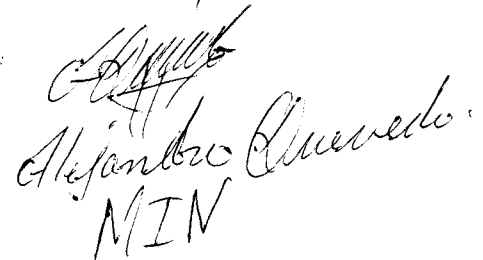 Alejandro Quevedo.
MIN